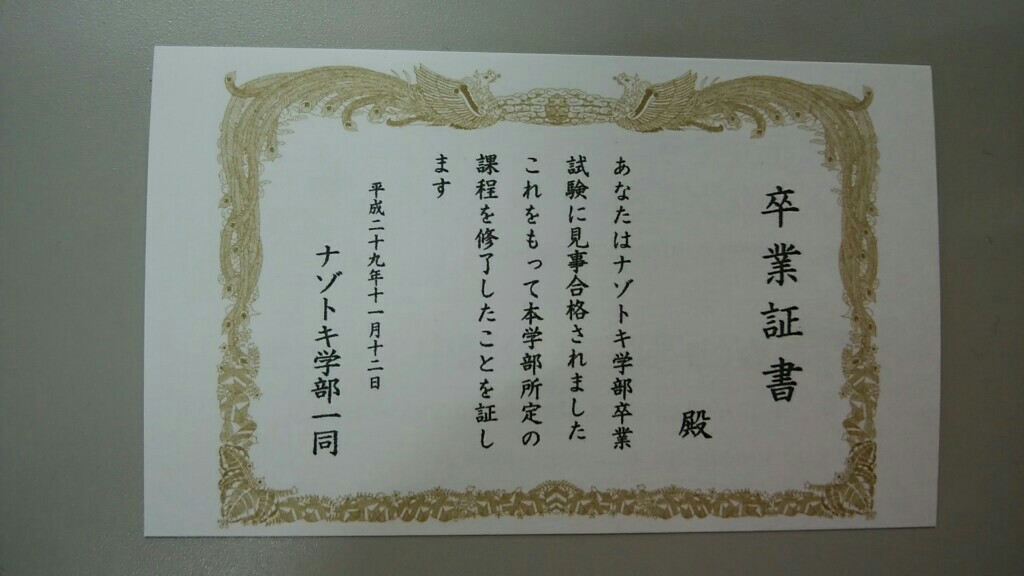 卒業証書
殿
あなたはナゾトキ学部卒業
試験に見事合格されました
これをもって本学部所定の
課程を修了したことを証し
ます
平成二十九年十一月十二日
ナゾトキ学部一同